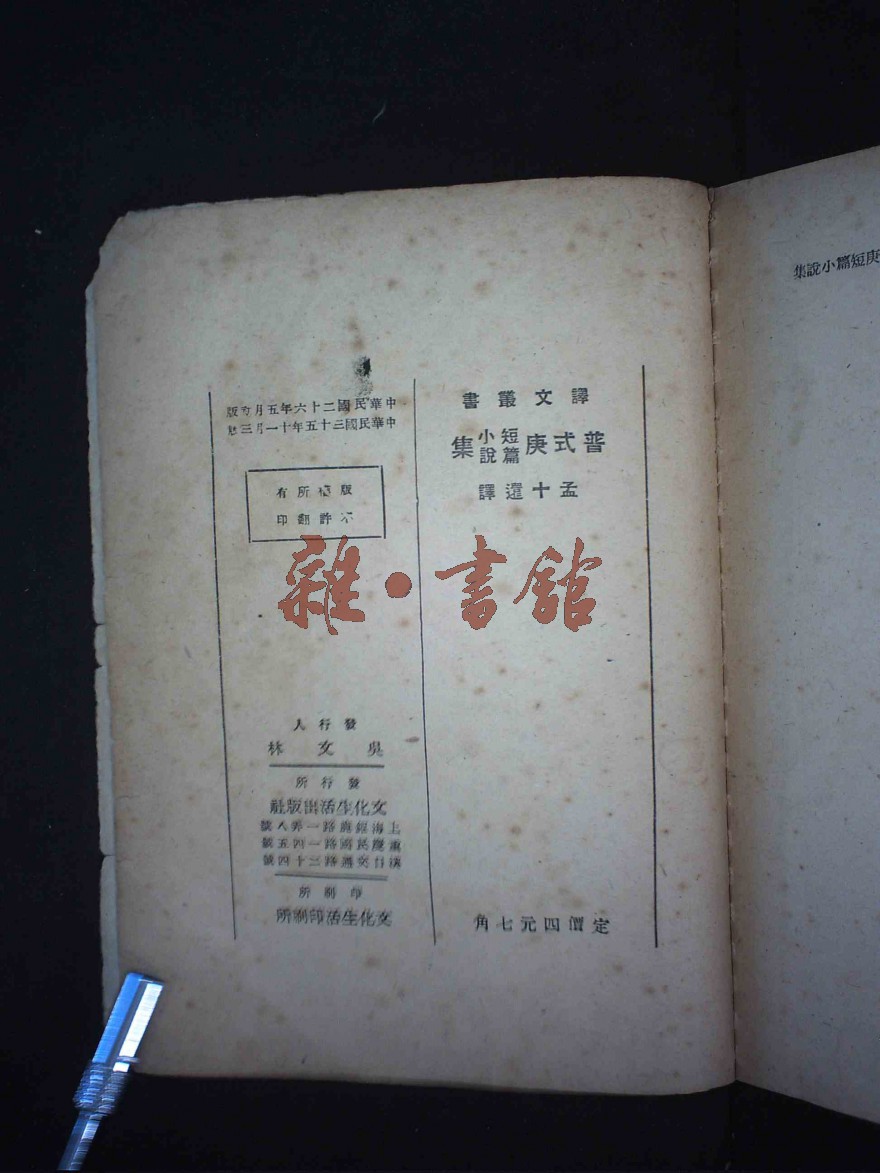 譯文叢書
普式庚短篇小說集
孟十還譯
定價四元七角
中華民國二十六年五月初版
中華民國三十五年十一月三版
版權所有
不許翻印
發行人
吳文林
發行所
文化生活出版社
上海鉅鹿路一弄八號
重慶民國路一四五號
漢口交通路三十四號
印刷所
文化生活印刷所
庚短篇小說集
雜·書館